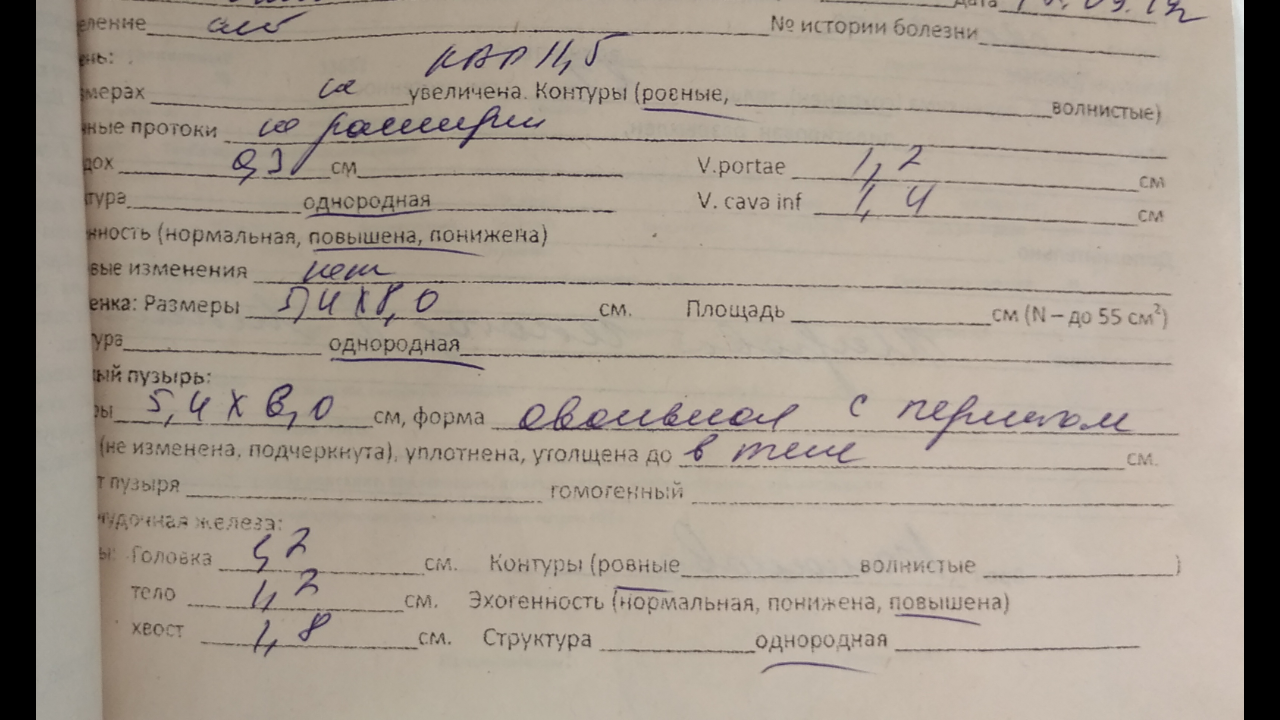 еление амб № истории болезни
ень: КВР 11,5
мерах не увеличена. Контуры (ровные, волнистые)
ные протоки не расширены
дох 0,3 см V.portae 1,2 см
тура однородная V. cava inf 1,4 см
нность (нормальная, повышена, понижена)
вые изменения нет
енка: Размеры 5,4 х 8,0 см. Площадь см (N – до 55 см²)
ура однородная
ый пузырь:
ры 5,4 х 8,0 см, форма овальная с перегибом
(не изменена, подчеркнута), уплотнена, утолщена до в теле см.
т пузыря гомогенный
удочная железа:
ы: Головка 2 см. Контуры (ровные волнистые )
тело 1,2 см. Эхогенность (нормальная, понижена, повышена)
хвост 1,8 см. Структура однородная